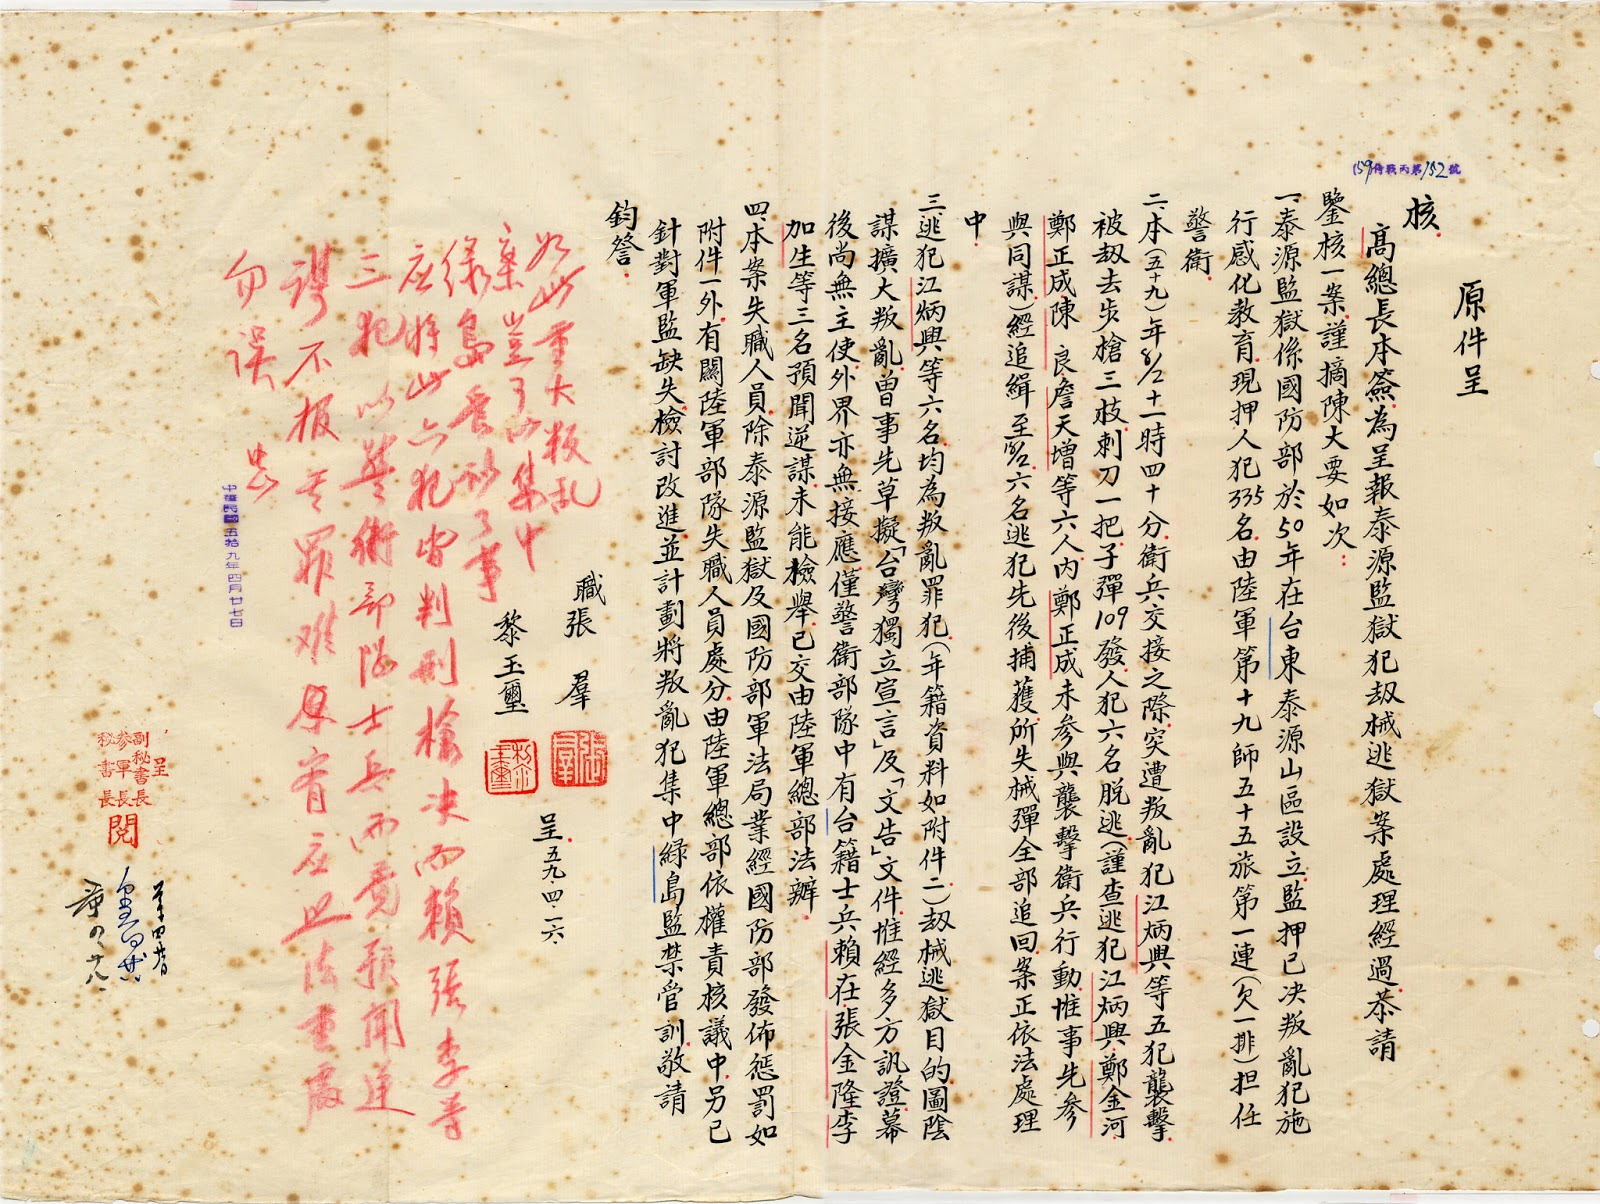 (59)侍戰丙第152號
原件呈
核.
高總長本簽為呈報泰源監獄犯刼械逃獄案處理經過.恭請
鑒核一案.謹摘陳大要如次:
一.泰源監獄係國防部於50年在台東泰源山區設立.監押已决叛亂犯施
行感化教育.現押人犯335名.由陸軍第十九師五十五旅第一連(欠一排)担任
警衛.
二.本(五十九)年2/8十一時四十分.衛兵交接之際.突遭叛亂犯江炳興等五犯襲擊.
被刼去步槍三枝刺刀一把.子彈109發.人犯六名脫逃(謹查逃犯江炳興.鄭金河.
鄭正成.陳 良.詹天增等六人.內鄭正成未參與襲擊衛兵行動.惟事先參
與同謀)經追緝至 六名逃犯先後捕獲.所失械彈全部追回.案正依法處理
中.
三.逃犯江炳興等六名.均為叛亂罪犯.(年籍資料如附件二)刼械逃獄目的.圖陰
謀擴大叛亂.曾事先草擬「台灣獨立宣言」及「文告」文件.惟經多方訊證.幕
後尚無主使.外界亦無接應.僅警衛部隊中有台籍士兵賴在.張金隆.李
加生等三名預聞逆謀.未能檢舉.已交由陸軍總部法辦.
四.本案失職人員.除泰源監獄及國防部軍法局業經國防部發佈懲罰如
附件一外.有關陸軍部隊失職人員處分.由陸軍總部依權責核議中.另已
針對軍監缺失.檢討改進.並計劃將叛亂犯集中綠島監禁管訓.敬請
鈞詧.
職張 羣
黎玉璽
呈.五九.四.一六.
如此重大叛乱
案豈可以集中
绿島管訓了事
应將此六犯皆判刑槍决而賴張李等
三犯以警衛部隊士兵而竟預聞逆
謀不报其罪难恕宥应照法重處
勿誤
中華民國五拾九年四月廿七日
呈
副秘書長
參軍長
秘書長
閱